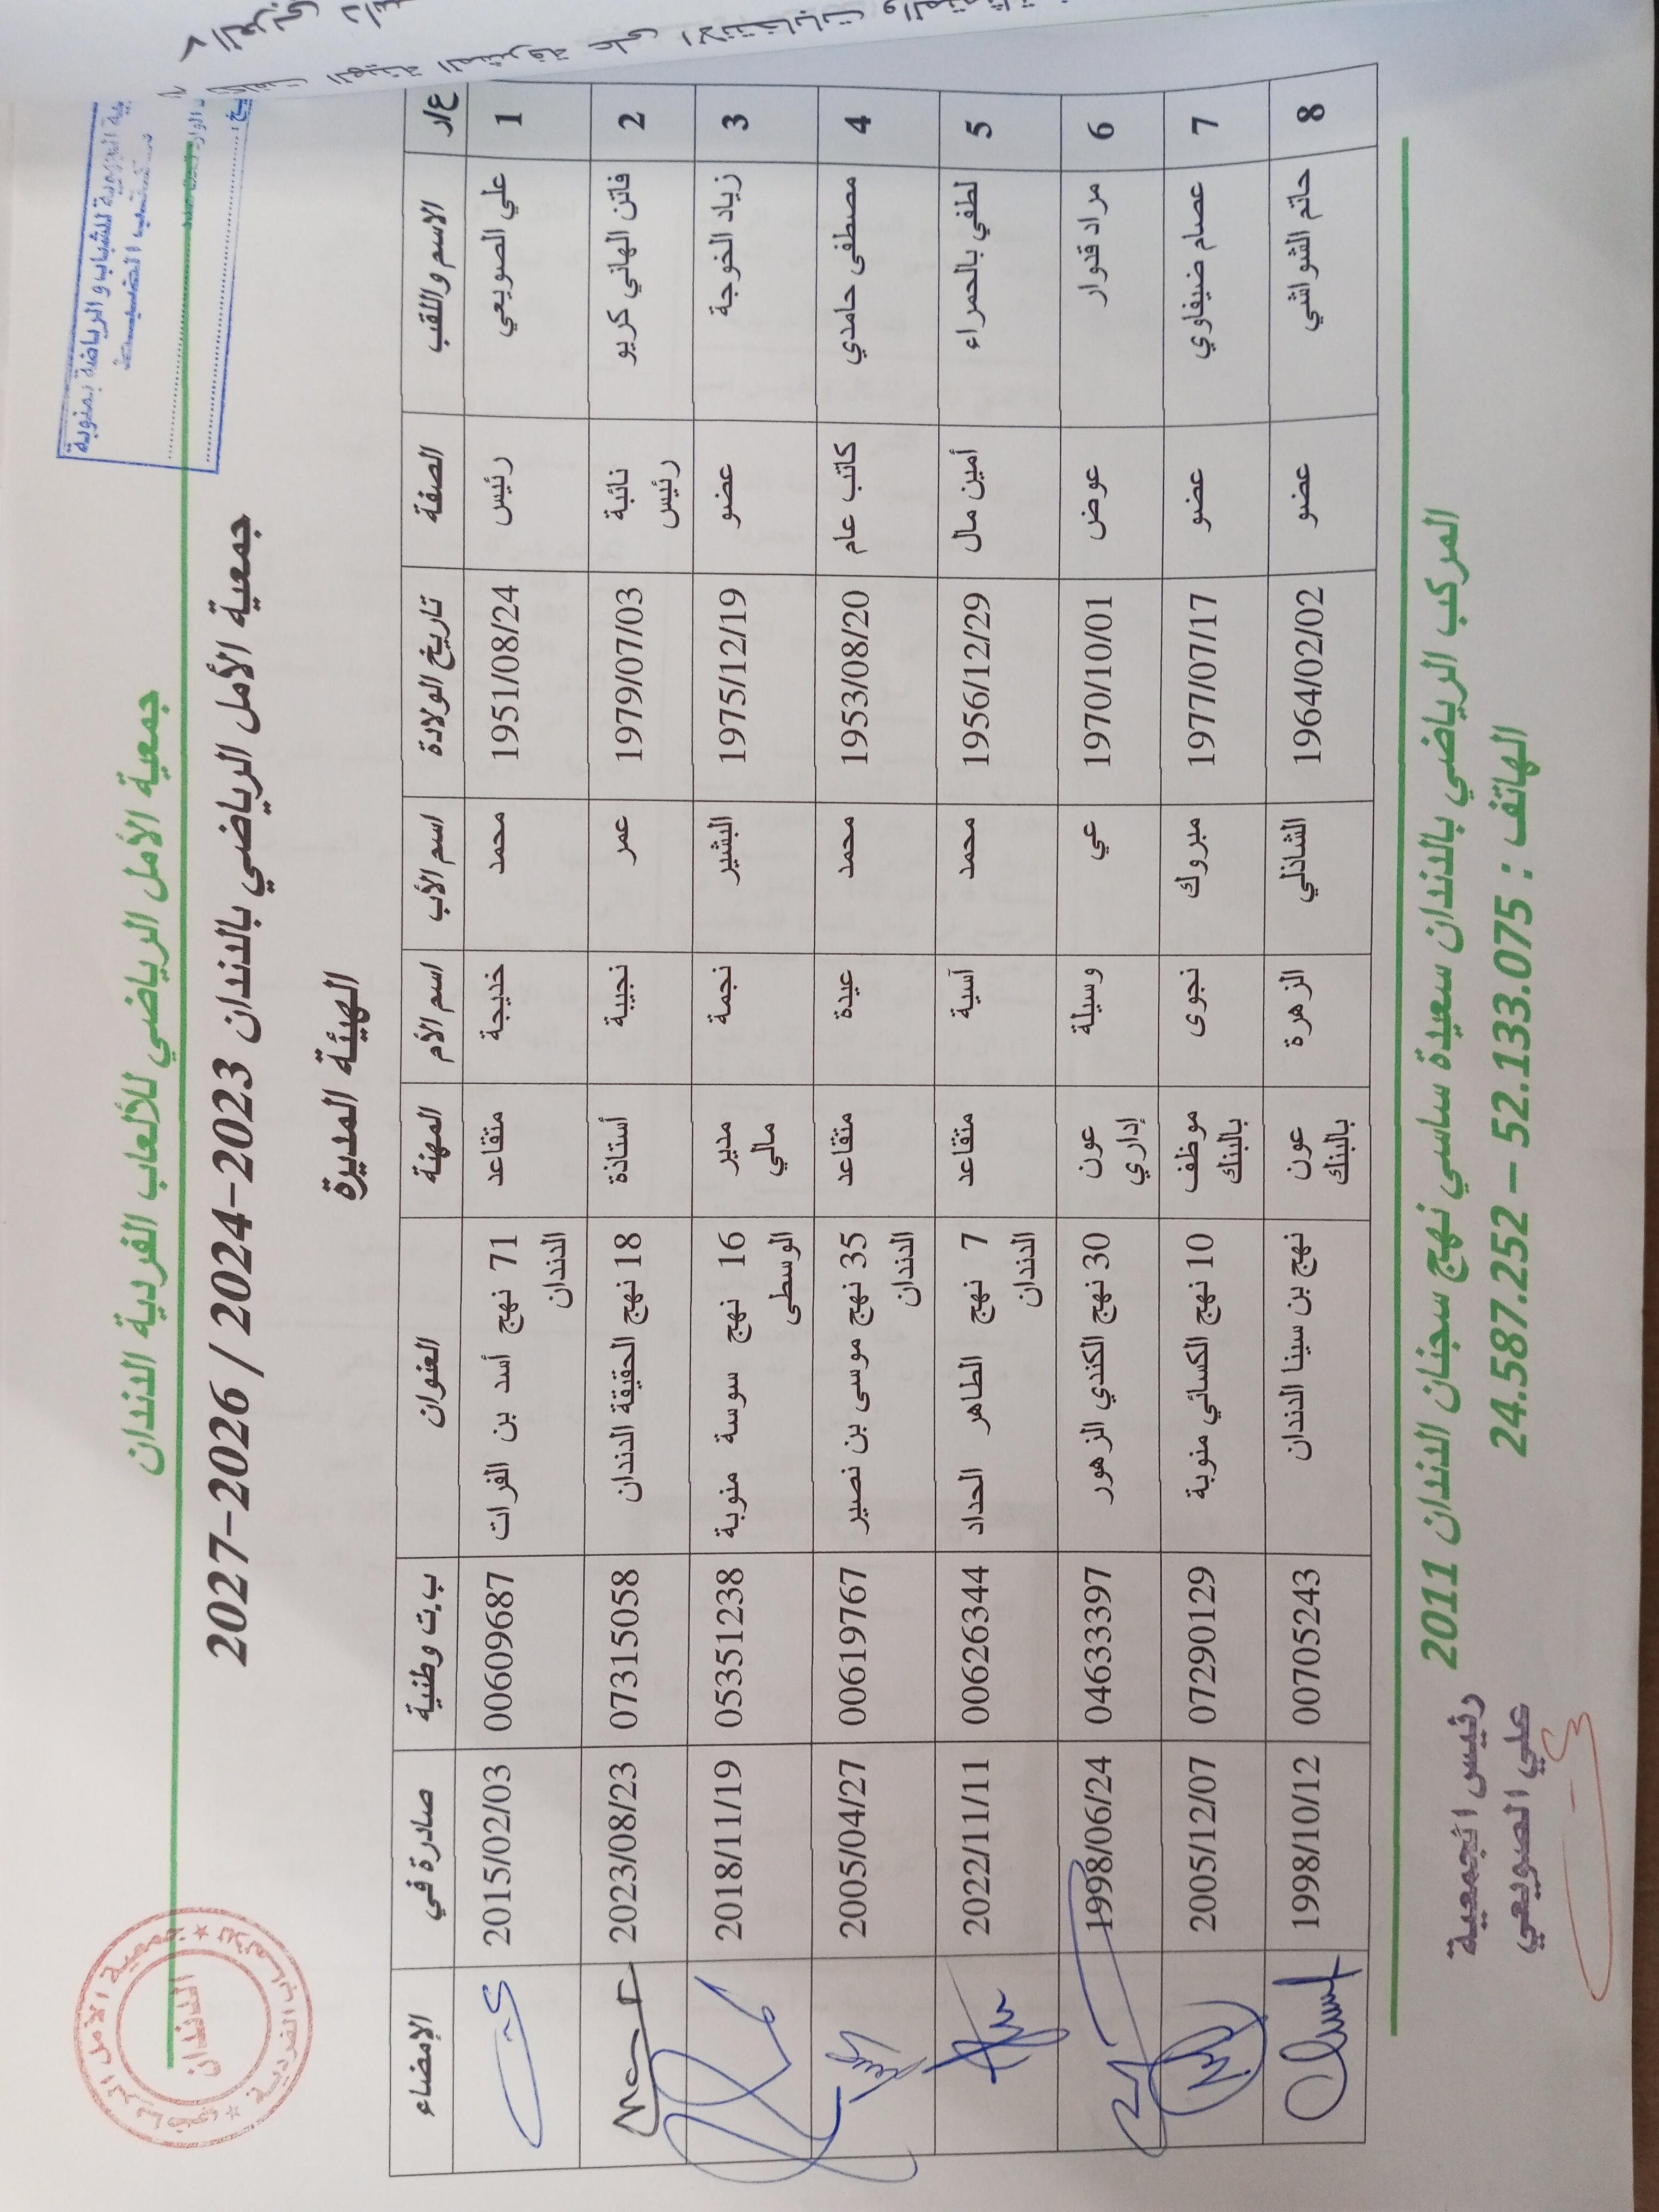 جمعية الأمل الرياضي للألعاب الفردية الدندان
للشباب والرياضة بمنوبة
جمعية الأمل الرياضي بالدندان 2023-2024 / 2026-2027
الهيئة المديرة
ع/ر الاسم واللقب الصفة تاريخ الولادة اسم الأب اسم الأم المهنة العنوان ب.ت وطنية صادرة في الإمضاء
1 علي الصويعي رئيس 1951/08/24 محمد خديجة متقاعد 71 نهج أسد بن الفرات 00609687 2015/02/03
الدندان
2 فاتن الهاني كريو نائبة 1979/07/03 عمر نجيبة أستاذة 18 نهج الحقيقة الدندان 07315058 2023/08/23
رئيس
3 زياد الخوجة عضو 1975/12/19 البشير نجمة مدير 16 نهج سوسة منوبة 05351238 2018/11/19
مالي الوسطى
4 مصطفى حامدي كاتب عام 1953/08/20 محمد عيدة متقاعد 35 نهج موسى بن نصير 00619767 2005/04/27
الدندان
5 لطفي بالحمراء أمين مال 1956/12/29 محمد آسية متقاعد 7 نهج الطاهر الحداد 00626344 2022/11/11
الدندان
6 مراد قدوار عوض 1970/10/01 عي وسيلة عون 30 نهج الكندي الزهور 04633397 1998/06/24
إداري
7 عصام ضيفاوي عضو 1977/07/17 مبروك نجوى موظف 10 نهج الكسائي منوبة 07290129 2005/12/07
بالبنك
8 حاتم الشواشي عضو 1964/02/02 الشاذلي الزهرة عون نهج بن سينا الدندان 00705243 1998/10/12
بالبنك
المركب الرياضي بالدندان سعيدة ساسي نهج سجنان الدندان 2011
الهاتف : 52.133.075 – 24.587.252
رئيس الجمعية
علي الصويعي
جمعية الأمل الرياضي
الدندان